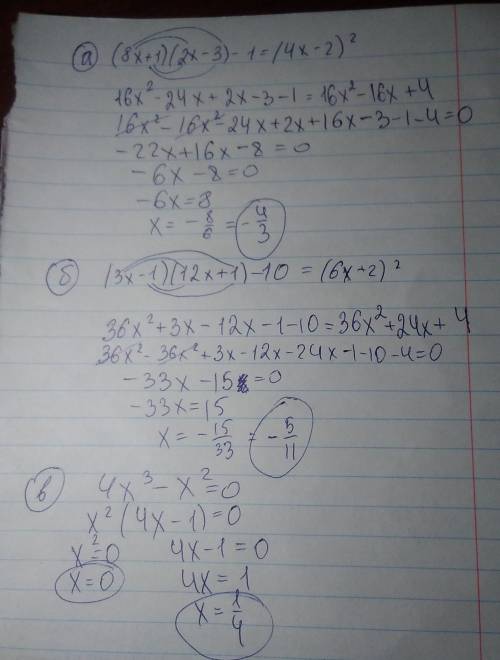 а) (8x+1)(2x-3)-1=(4x-2)²
16x²-24x+2x-3-1=16x²-16x+4
16x²-16x²-24x+2x+16x-3-1-4=0
-22x+16x-8=0
-6x-8=0
-6x=8
x=-8/6=-4/3
б) (3x-1)(12x+1)-10=(6x+2)²
36x²+3x-12x-1-10=36x²+24x+4
36x²-36x²+3x-12x-24x-1-10-4=0
-33x-15=0
-33x=15
x=-15/33=-5/11
в) 4x³-x²=0
x²(4x-1)=0
x²=0 4x-1=0
x=0 4x=1
x=1/4